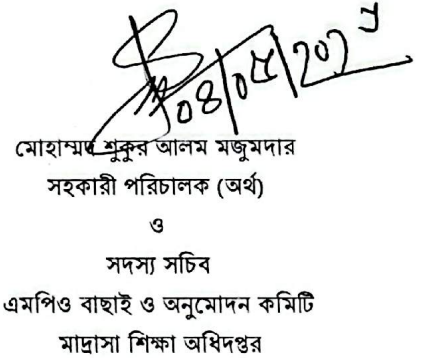 ০৪/০৫/২০২
মোহাম্মদ শুকুর আলম মজুমদার
সহকারী পরিচালক (অর্থ)
ও
সদস্য সচিব
এমপিও বাছাই ও অনুমোদন কমিটি
মাদ্রাসা শিক্ষা অধিদপ্তর